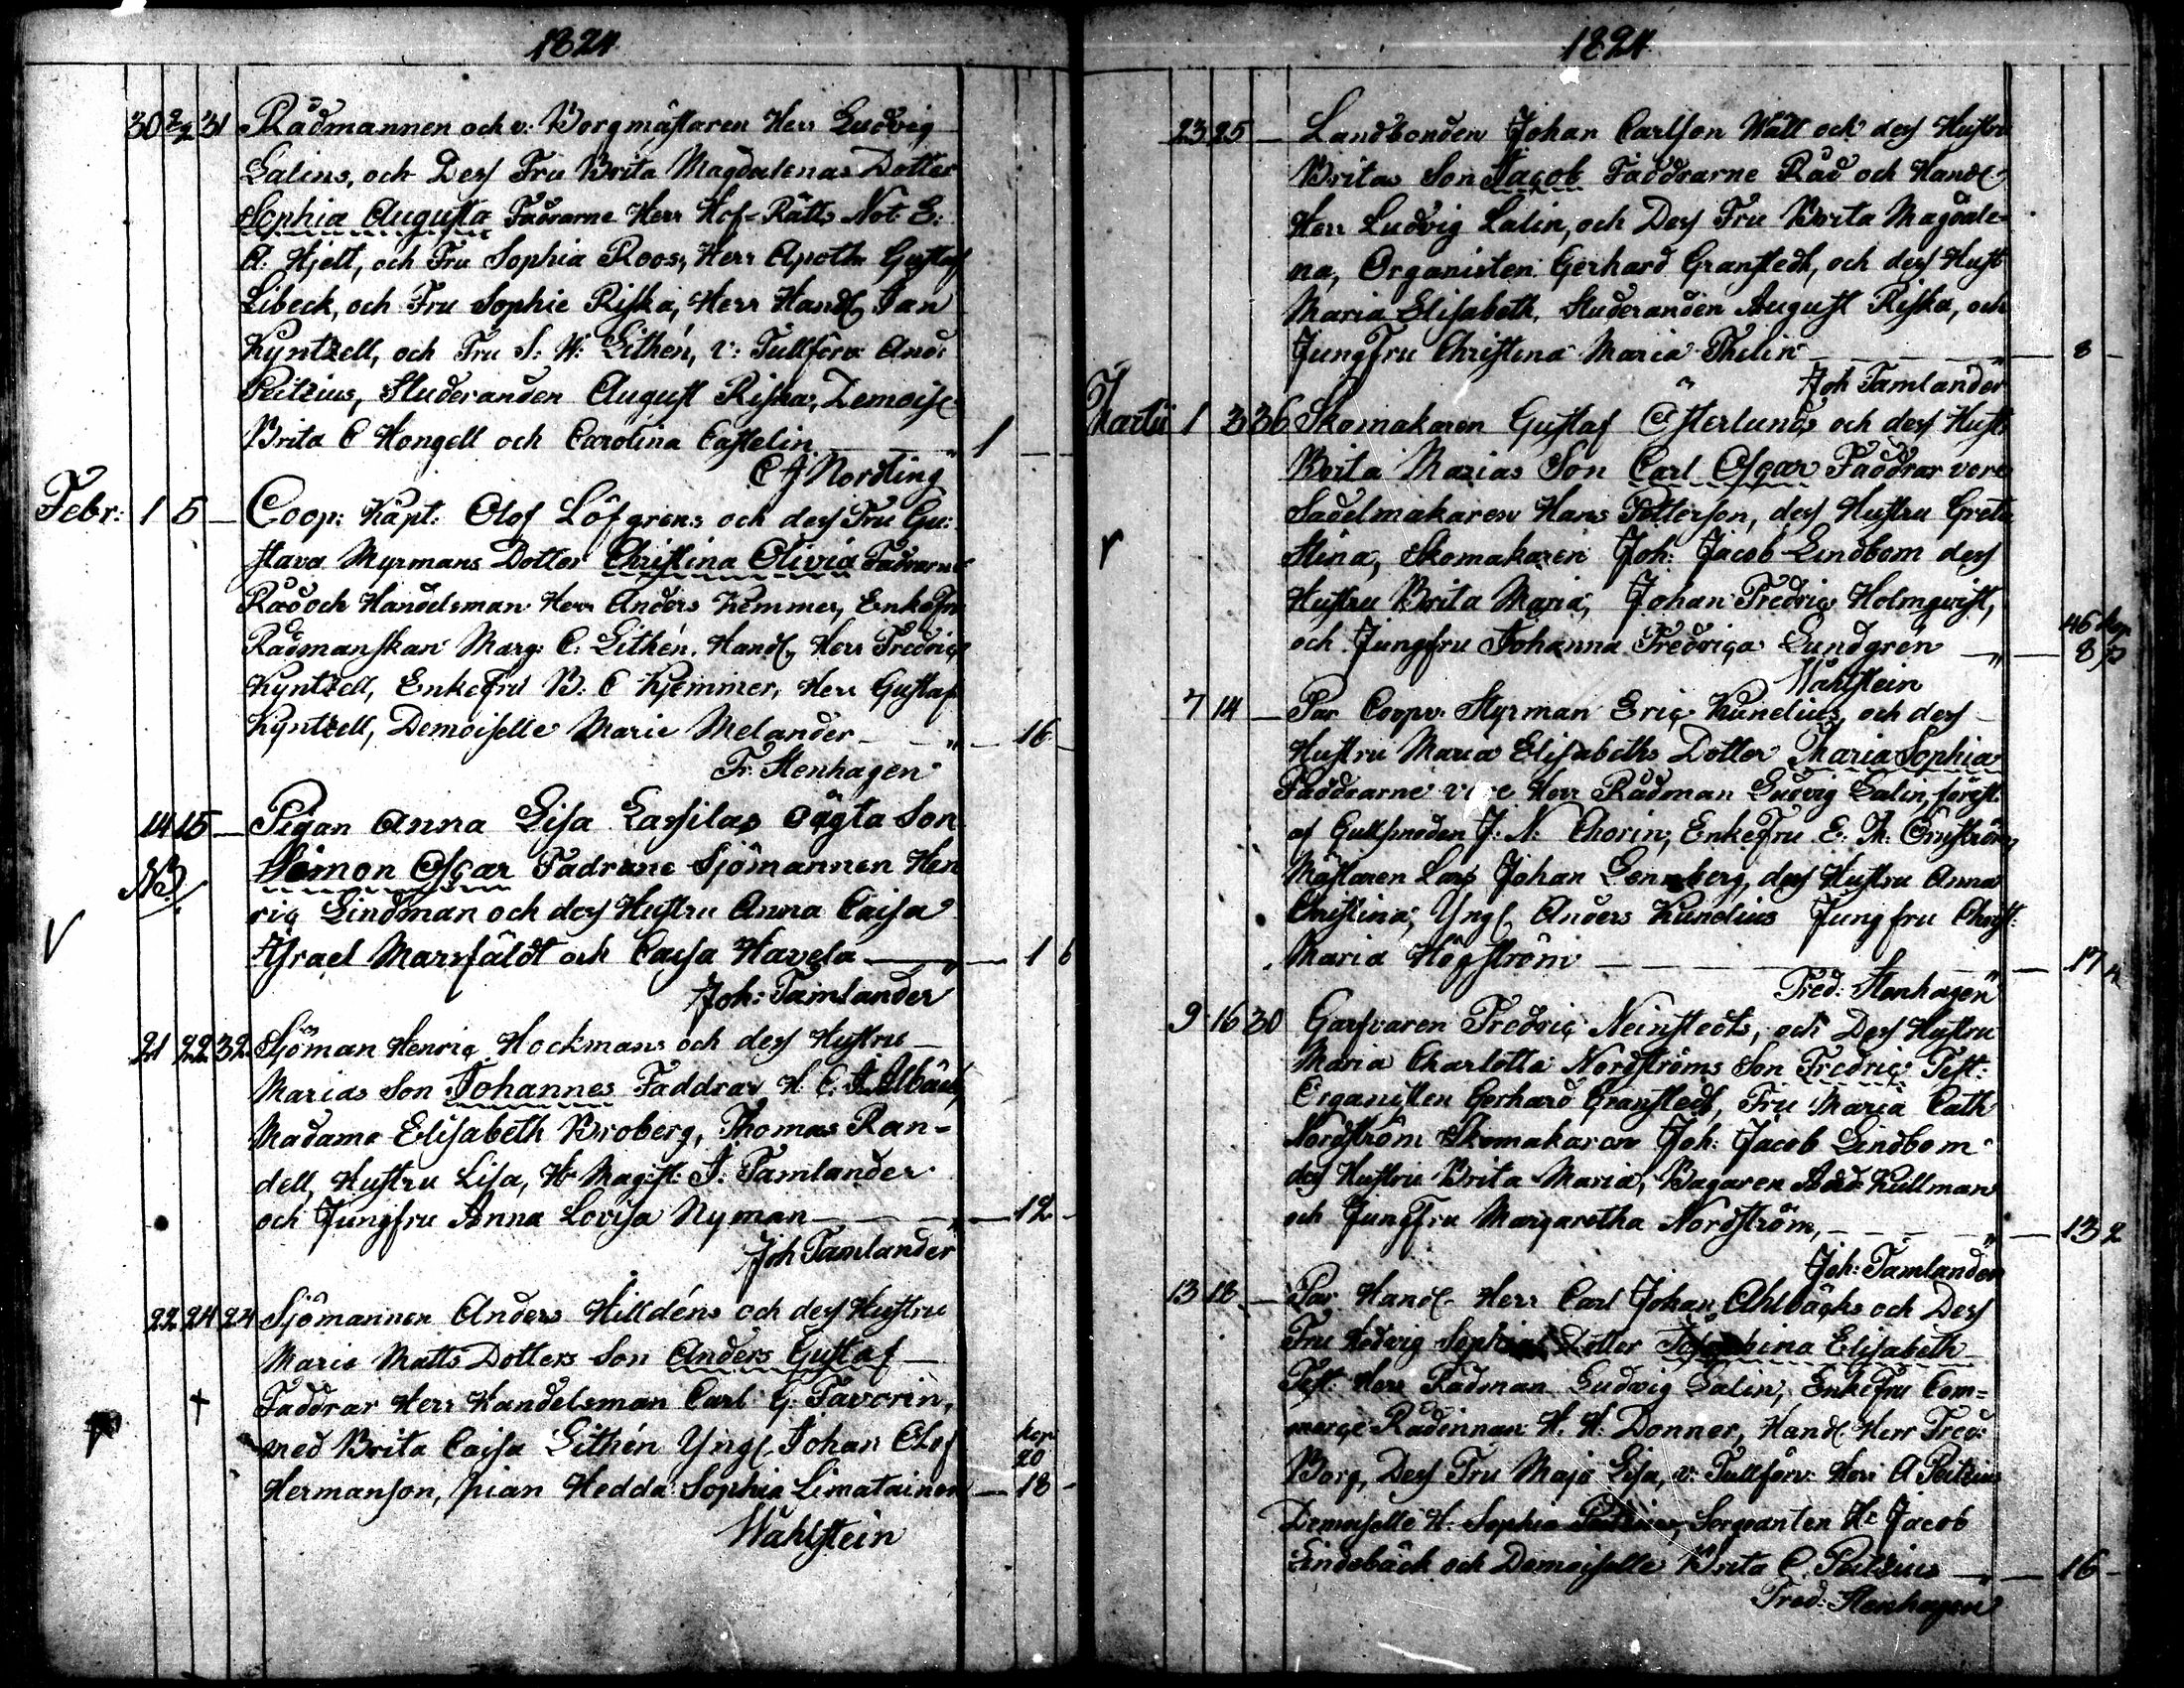 1824
30 2/2 31 Rådmannen och v: Borgmästaren Herr Ludvig
Salins, och Dess Fru Brita Magdalenas Dotter
Sophia Augusta Faddrarne Herr Hof-Rätts Not E:
A: Hjelt, och Fru Sophia Roos, Herr Apoth Gustaf
Libeck, och Fru Sophie Riska, Herr Handl Jan
Kyntzell, och Fru S: W: Lithén, v: Tullförv And:
Peitzius, Studeranden August Riska, Demoisl
Brita C Hongell och Carolina Castelin 1
C J Nordling
Febr: 1 5 Coop: Kapt: Olof Löfgrens och dess Fru Gu:
stava Myrmans Dotter Christina Olivia Faddrarne
Råd och Handelsman Herr Anders Kemmer, Enkefru
Rådmanskan Marg: C: Lithén, Handl, Herr Fredric
Kyntzell, Enkefru B: C Kjemmer, Herr Gustaf
Kyntzell, Demoiselle Marie Melander 16
Fr. Stenhagen
14 15 Pigan Anna Lisa Lassilas oägta Son
NB Simon Oscar Fadrane Sjömannen Hen
ric Lindman och dess Hustru Anna Caisa
Israel Marsfäldt och Caisa Havela 1 6
Joh: Tamlander
21 22 32 Sjöman Henric Hockmans och dess Hustru
Marias Son Johannes Faddrar H. C. J. Ahlbäck,
Madame Elisabeth Broberg, Thomas Ran-
dell, Hustru Lisa, Hr Magist: J: Tamlander
och Jungfru Anna Lovisa Nyman 12
Joh Tamlander
22 24 24 Sjömannen Anders Hilldéns och dess Hustru
Maria Matts Dotters Son Anders Gustaf
Faddrar Herr Handelsman Carl G: Favorin,
med Brita Caisa Lithén Yngl. Johan Olof kop 20
Hermanson, pian Hedda Sophia Limatainen 18
Wahlstein
1824
23 25 Landbonden Johan Carlson Wäll och dess Hustru
Britas Son Jacob Faddrarne Råd och Handl
Herr Ludvig Salin, och Dess Fru Brita Magdale-
na, Organisten Gerhard Granstedt, och dess Hust
Maria Elisabeth, Studeranden August Riska, och
Jungfru Christina Maria Thelin 8
Joh Tamlander
Martii 1 3 36 Skomakaren Gustaf Österlunds och dess Hust
Brita Marias Son Carl Oscar Faddrar vore
Sadelmakaren Hans Petterson, dess Hustru Greta
Stina, Skomakaren Joh: Jacob Lindbom dess
Hustru Brita Maria, Johan Fredric Holmqvist,
och Jungfru Johanna Fredrica Lundgrén 8
Wahlstein
7 14 Par Coopv. Styrman Eric Kunelius, och dess
Hustru Maria Elisabeths Dotter Maria Sophia
Faddrarne vore Herr Rådman Ludvig Salin, förest.
af Gullsmeden J: N: Chorin, Enkefru E: M: Enström
Mästaren Lars Johan Lennberg, dess Hustru Anna
Christina, Yngl. Anders Kunelius Jungfru Christ:
Maria Högström 17
Fred: Stenhagen
9 16 30 Garfvaren Fredric Neinstedts, och Dess Hustru
Maria Charlotta Nordströms Son Fredric Test:
Organisten Gerhard Granstedt, Fru Maria Cath
Nordström Skomakaren Joh: Jacob Lindbom
dess Hustru Brita Maria, Bagaren Kullman
och Jungfru Margaretha Nordström, 13 2
Joh: Tamlander
13 18 Par Handl Herr Carl Johan Ahlbäcks och Dess
Fru Hedvig Sophias Dotter Josephina Elisabeth
Test: Herr Rådman Ludvig Salin, Enkefru Com-
merce-Rådinnan H. H: Donner, Handl Herr Fred:
Borg, Dess Fru Maja Lisa, v: Tullförv: Herr A Peitzius
Demoiselle H. Sophia Peitzius, Sergeanten Hr Jacob
Lindebäck och Demoiselle Brita C. Peitzius 16
Fred: Stenhagen